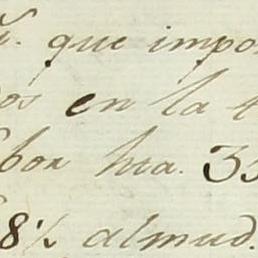 que impo
os en la
bon hta. 33
8½ almud.